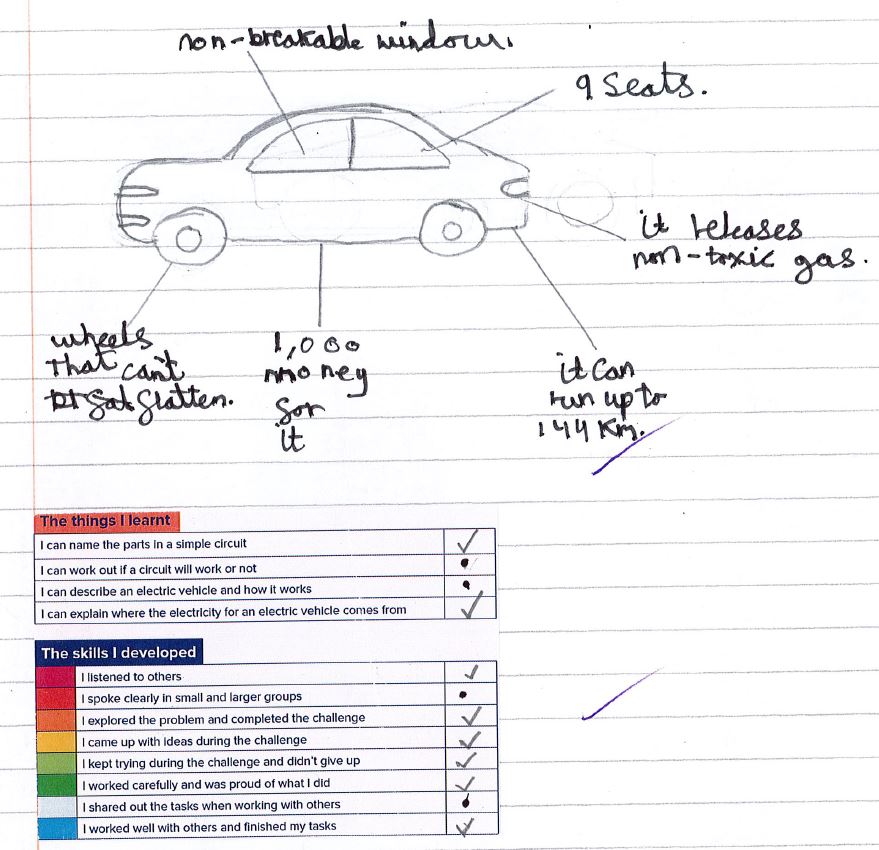 non-breakable window.
9 Seats.
it releases
non-toxic gas.
wheels
That can't
flatten.
1,000
money
for
it
it can
run up to
144 Km.
The things I learnt
I can name the parts in a simple circuit ✓
I can work out if a circuit will work or not •
I can describe an electric vehicle and how it works •
I can explain where the electricity for an electric vehicle comes from ✓
The skills I developed
I listened to others ✓
I spoke clearly in small and larger groups •
I explored the problem and completed the challenge ✓
I came up with ideas during the challenge ✓
I kept trying during the challenge and didn't give up ✓
I worked carefully and was proud of what I did ✓
I shared out the tasks when working with others •
I worked well with others and finished my tasks ✓